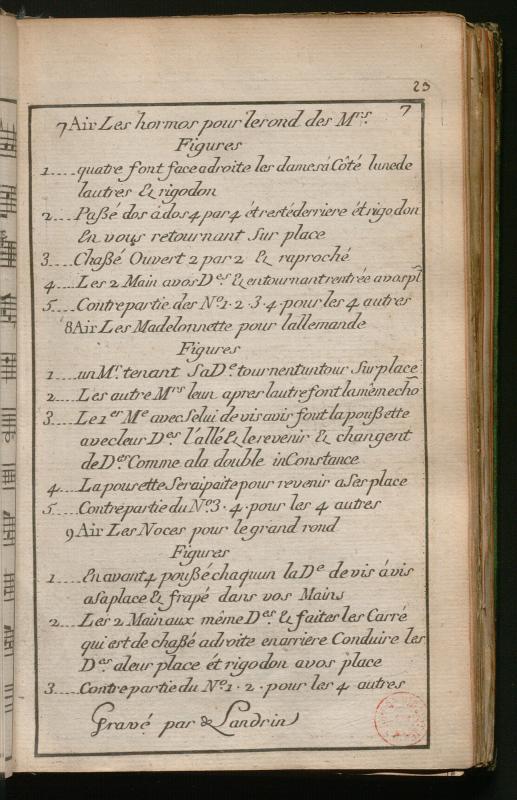 23
7
7 Air Les hormos pour le rond des Mrs.
Figures
1.... quatre font face adroite les dames à Côté lunede
lautres & rigodon
2.... Paßé dos à dos 4 par 4 ét resté derriere ét rigodon
En vous retournant Sur place
3.... Chaßé Ouvert 2 par 2 & raproché
4.... Les 2 Main avos Des & entournant rentrée avos pl
5.... Contrepartie des No. 1. 2. 3. 4. pour les 4 autres
8 Air Les Madelonnette pour lallemande
Figures
1.... un Mr. tenant Sa De tournent un tour Sur place
2.... Les autre Mrs leun apres lautre font la même cho
3.... Le 1er Me avec Selui de vis avis font la poußette
avec leur Des l'allé & le revenir & changent
de Des Comme a la double inConstance
4.... La pousette Serai paite pour revenir a Ses place
5.... Contrepartie du No. 3. 4. pour les 4 autres
9 Air Les Noces pour le grand rond
Figures
1.... En avant 4 poußé chaquun la De de vis à vis
a Sa place & frapé dans vos Mains
2.... Les 2 Main aux même Des & faites les Carré
qui est de chaßé a droite en arriere Conduire les
Des a leur place ét rigodon a vos place
3.... Contrepartie du No. 1. 2. pour les 4 autres
Gravé par de Landrin